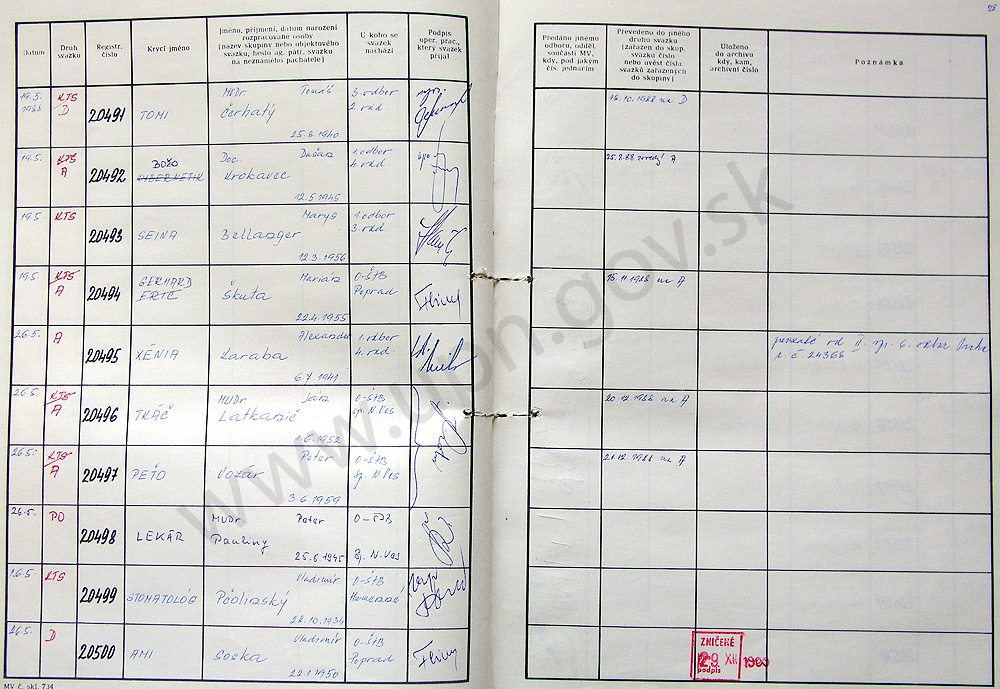 Datum
Druh
svazku
Registr.
číslo
Krycí jméno
Jméno, příjmení, datum narození
rozpracované osoby
(název skupiny nebo objektového
svazku, heslo ag. pátr. svazku
na neznámého pachatele)
U koho se
svazek
nachází
Podpis
oper. prac.,
který svazek
přijal
Předáno jinému
odboru, odděl.
součásti MV,
kdy, pod jakým
čís. jednacím
Převedeno do jiného
druhu svazku
(zařazen do skup.
svazku číslo
nebo uvést čísla
svazků zařazených
do skupiny)
Uloženo
do archivu
kdy, kam,
archivní číslo
Poznámka
19.5.
1988 KTS
D 20491 TOMI MUDr Tomáš
Čerhatý
25.6.1940 3. odbor
2. rad. 19.10.1988 na D
19.5. KTS
A 20492 BOŽO
KYBERNETIK Doc. Dušan
Krokavec
12.5.1945 1. odbor
4. rad. 25.8.88 A
19.5. KTS 20493 SEINA Marys
Bellanger
12.3.1956 1. odbor
3. rad.
19.5. KTS
A 20494 GERHARD
ERIC Marián
Škuta
22.4.1955 O-ŠtB
Poprad 15.11.1988 na A
26.5. A 20495 XÉNIA Alexander
Karaba
6.7.1941 1. odbor
4. rad. 6. odbor
č. 24366
26.5. KTS
A 20496 TKÁČ MUDr Ján
Latkanič
1.6.1952 O-ŠtB
Sp. N. Ves 20.12.1988 na A
26.5. KTS
A 20497 PEŤO Peter
Vozár
3.6.1959 O-ŠtB
Sp. N. Ves 21.12.1988 na A
26.5. PO 20498 LEKÁR MUDr. Peter
Pauliny
25.6.1945 O-ŠtB
Sp. N. Ves
26.5. KTS 20499 STOMATOLÓG Vladimír
Pčolinský
22.10.1934 O-ŠtB
Humenné
26.5. D 20500 AMI Vladimír
Soska
22.1.1950 O-ŠtB
Poprad
ZNIČENÉ
29 XII. 1989
podpis
MV č. skl. 734
www.upn.gov.sk